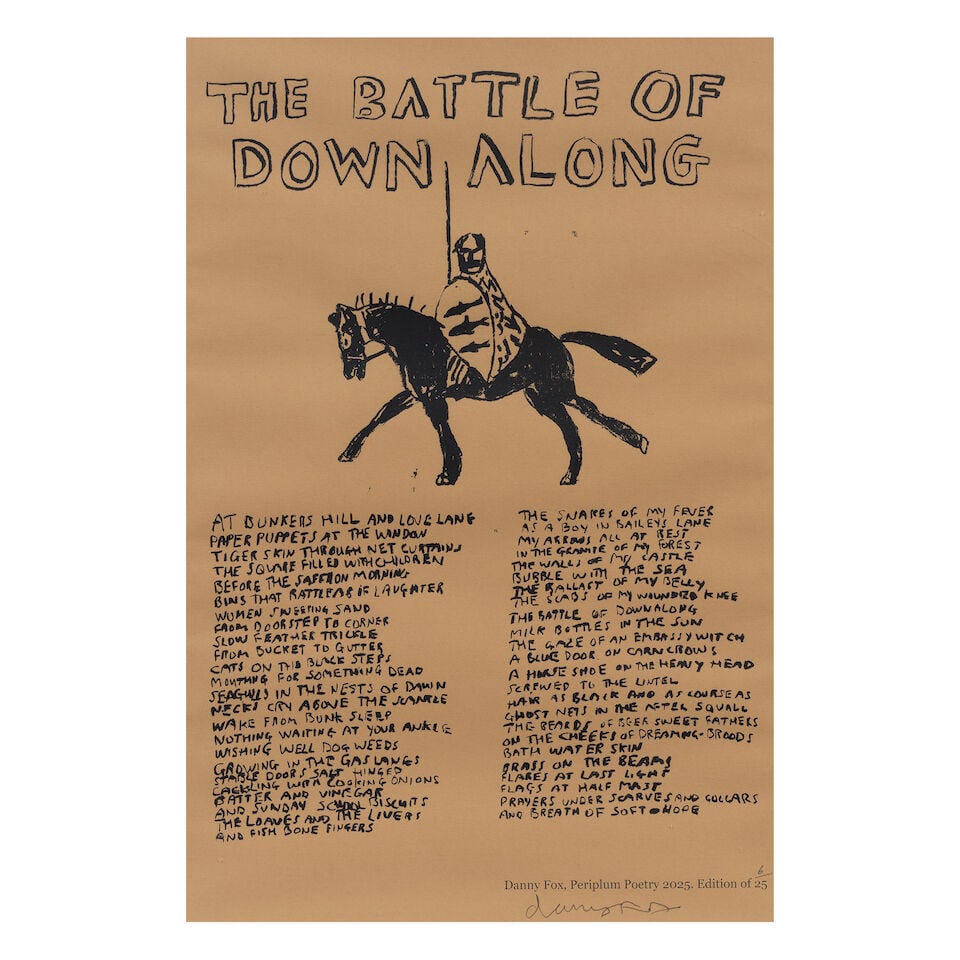 THE BATTLE OF
DOWN ALONG
AT BUNKERS HILL AND LOVE LANG
PAPER PUPPETS AT THE WINDOW
TIGER SKIN THROUGH NET CURTAINS
THE SQUARE FILLED WITH CHILDREN
BEFORE THE SAFFRON MORNING
BINS THAT RATTLE AS IF LAUGHTER
WOMEN SWEEPING SAND
FROM DOORSTEP TO CORNER
SLOW FEATHER TRICKLE
FROM BUCKET TO GUTTER
CATS ON THE BLACK STEPS
MOUTHING FOR SOMETHING DEAD
SEAGULLS IN THE NESTS OF DAWN
NECKS CRY ABOVE THE SCANTLE
WAKE FROM BUNK SLEEP
NOTHING WAITING AT YOUR ANKLE
WISHING WELL DOG WEEDS
GROWING IN THE GAS LANGS
STABLE DOORS SALT HINGED
CACKLING WITH COOKING ONIONS
BATTER AND VINEGAR
AND SUNDAY SCHOOL BISCUITS
THE LOAVES AND THE LIVERS
AND FISH BONE FINGERS
THE SNARES OF MY FEVER
AS A BOY IN BAILEYS LANE
MY ARROWS ALL AT REST
IN THE GRANITE OF MY FOREST
THE WALLS OF MY CASTLE
BUBBLE WITH THE SEA
THE BALLAST OF MY BELLY
THE SCABS OF MY WOUNDED KNEE
THE BATTLE OF DOWNALONG
MILK BOTTLES IN THE SUN
THE GAZE OF AN EMBASSY WITCH
A BLUE DOOR ON CARNCROWS
A HORSE SHOE ON THE HEAVY HEAD
SCREWED TO THE LINTEL
HAIR AS BLACK AND AS COURSE AS
GHOST NETS IN THE AFTER SQUALL
THE BEARDS OF BEER SWEET FATHERS
ON THE CHEEKS OF DREAMING-BROODS
BATH WATER SKIN
BRASS ON THE BEAMS
FLARES AT LAST LIGHT
FLAGS AT HALF MAST
PRAYERS UNDER SCARVES AND COLLARS
AND BREATH OF SOFT HOPE
6
Danny Fox, Periplum Poetry 2025. Edition of 25
danny Fox